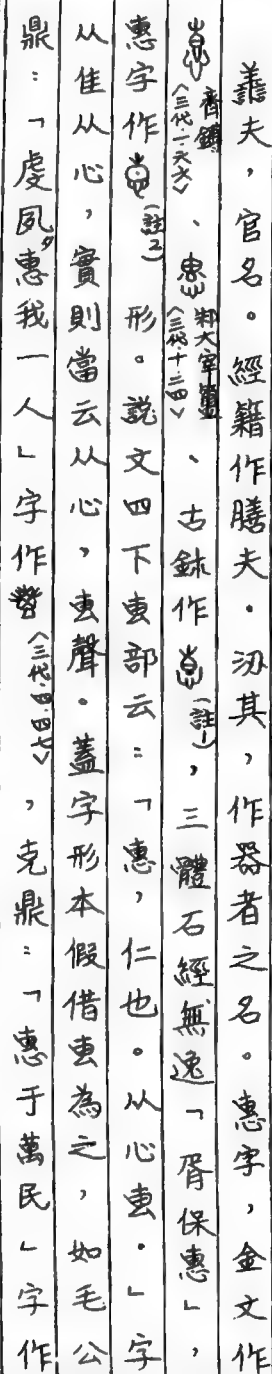 譱夫，官名。經籍作膳夫。沕其，作器者之名。惠字，金文作
齊鎛〈三代一．六六〉、邾大宰簠〈三代．十．二四〉、古鉥作（註1），三體石經無逸「胥保惠」，
惠字作（註2）形。說文四下叀部云：「惠，仁也。从心叀。」字
从隹从心，實則當云从心，叀聲。蓋字形本假借叀為之，如毛公
鼎：「虔夙夕惠我一人」字作〈三代．四．四七〉，克鼎：「惠于萬民」字作